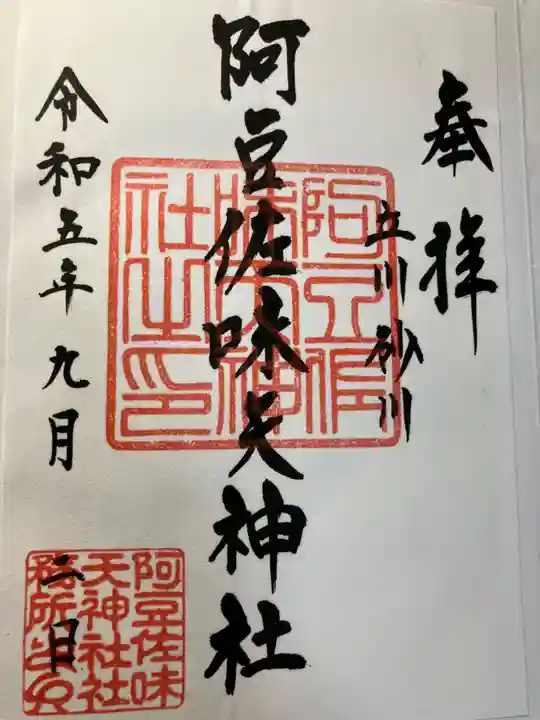 奉拝
立川砂川
阿豆佐味天神社
令和五年九月二日
阿豆佐
味天神
社之印
阿豆佐味
天神社社
務所之印